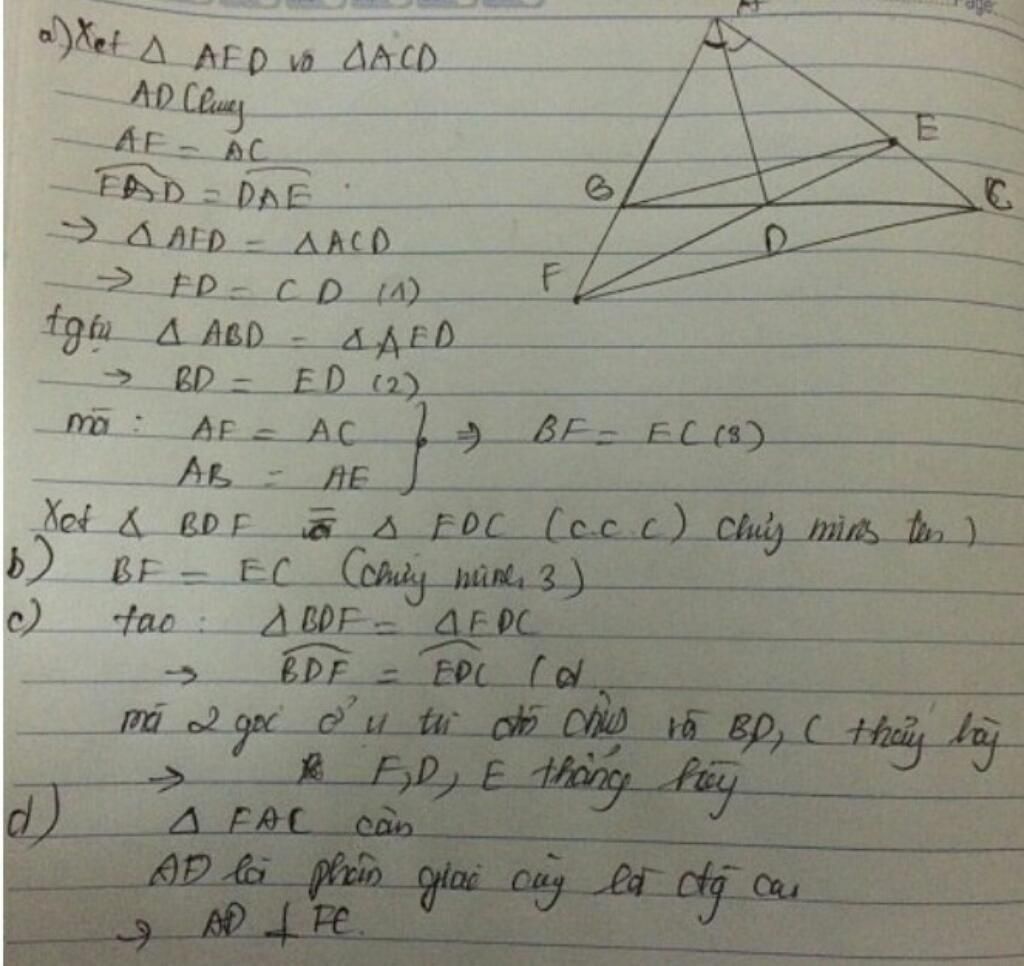 Page:
a) Xét Δ AFD và ΔACD
AD chung
AF = AC
FAD = DAE
→ Δ AFD = ΔACD
→ FD = CD (1)
tgtự Δ ABD = Δ AED
→ BD = ED (2)
mà : AF = AC
AB = AE
} ⇒ BF = EC (3)
Xét Δ BDF = Δ EDC (c.c.c) chứng minh trên )
b) BF = EC (chứng minh 3)
c) ta có : ΔBDF = ΔEDC
→ BDF = EDC (
mà 2 góc ở vị trí đối đỉnh và BD, C thẳng hàng
→ F, D, E thẳng hàng
d) Δ FAC cân
AD là phân giác cũng là đg cao
→ AD ⊥ FC.
A
E
B
C
D
F